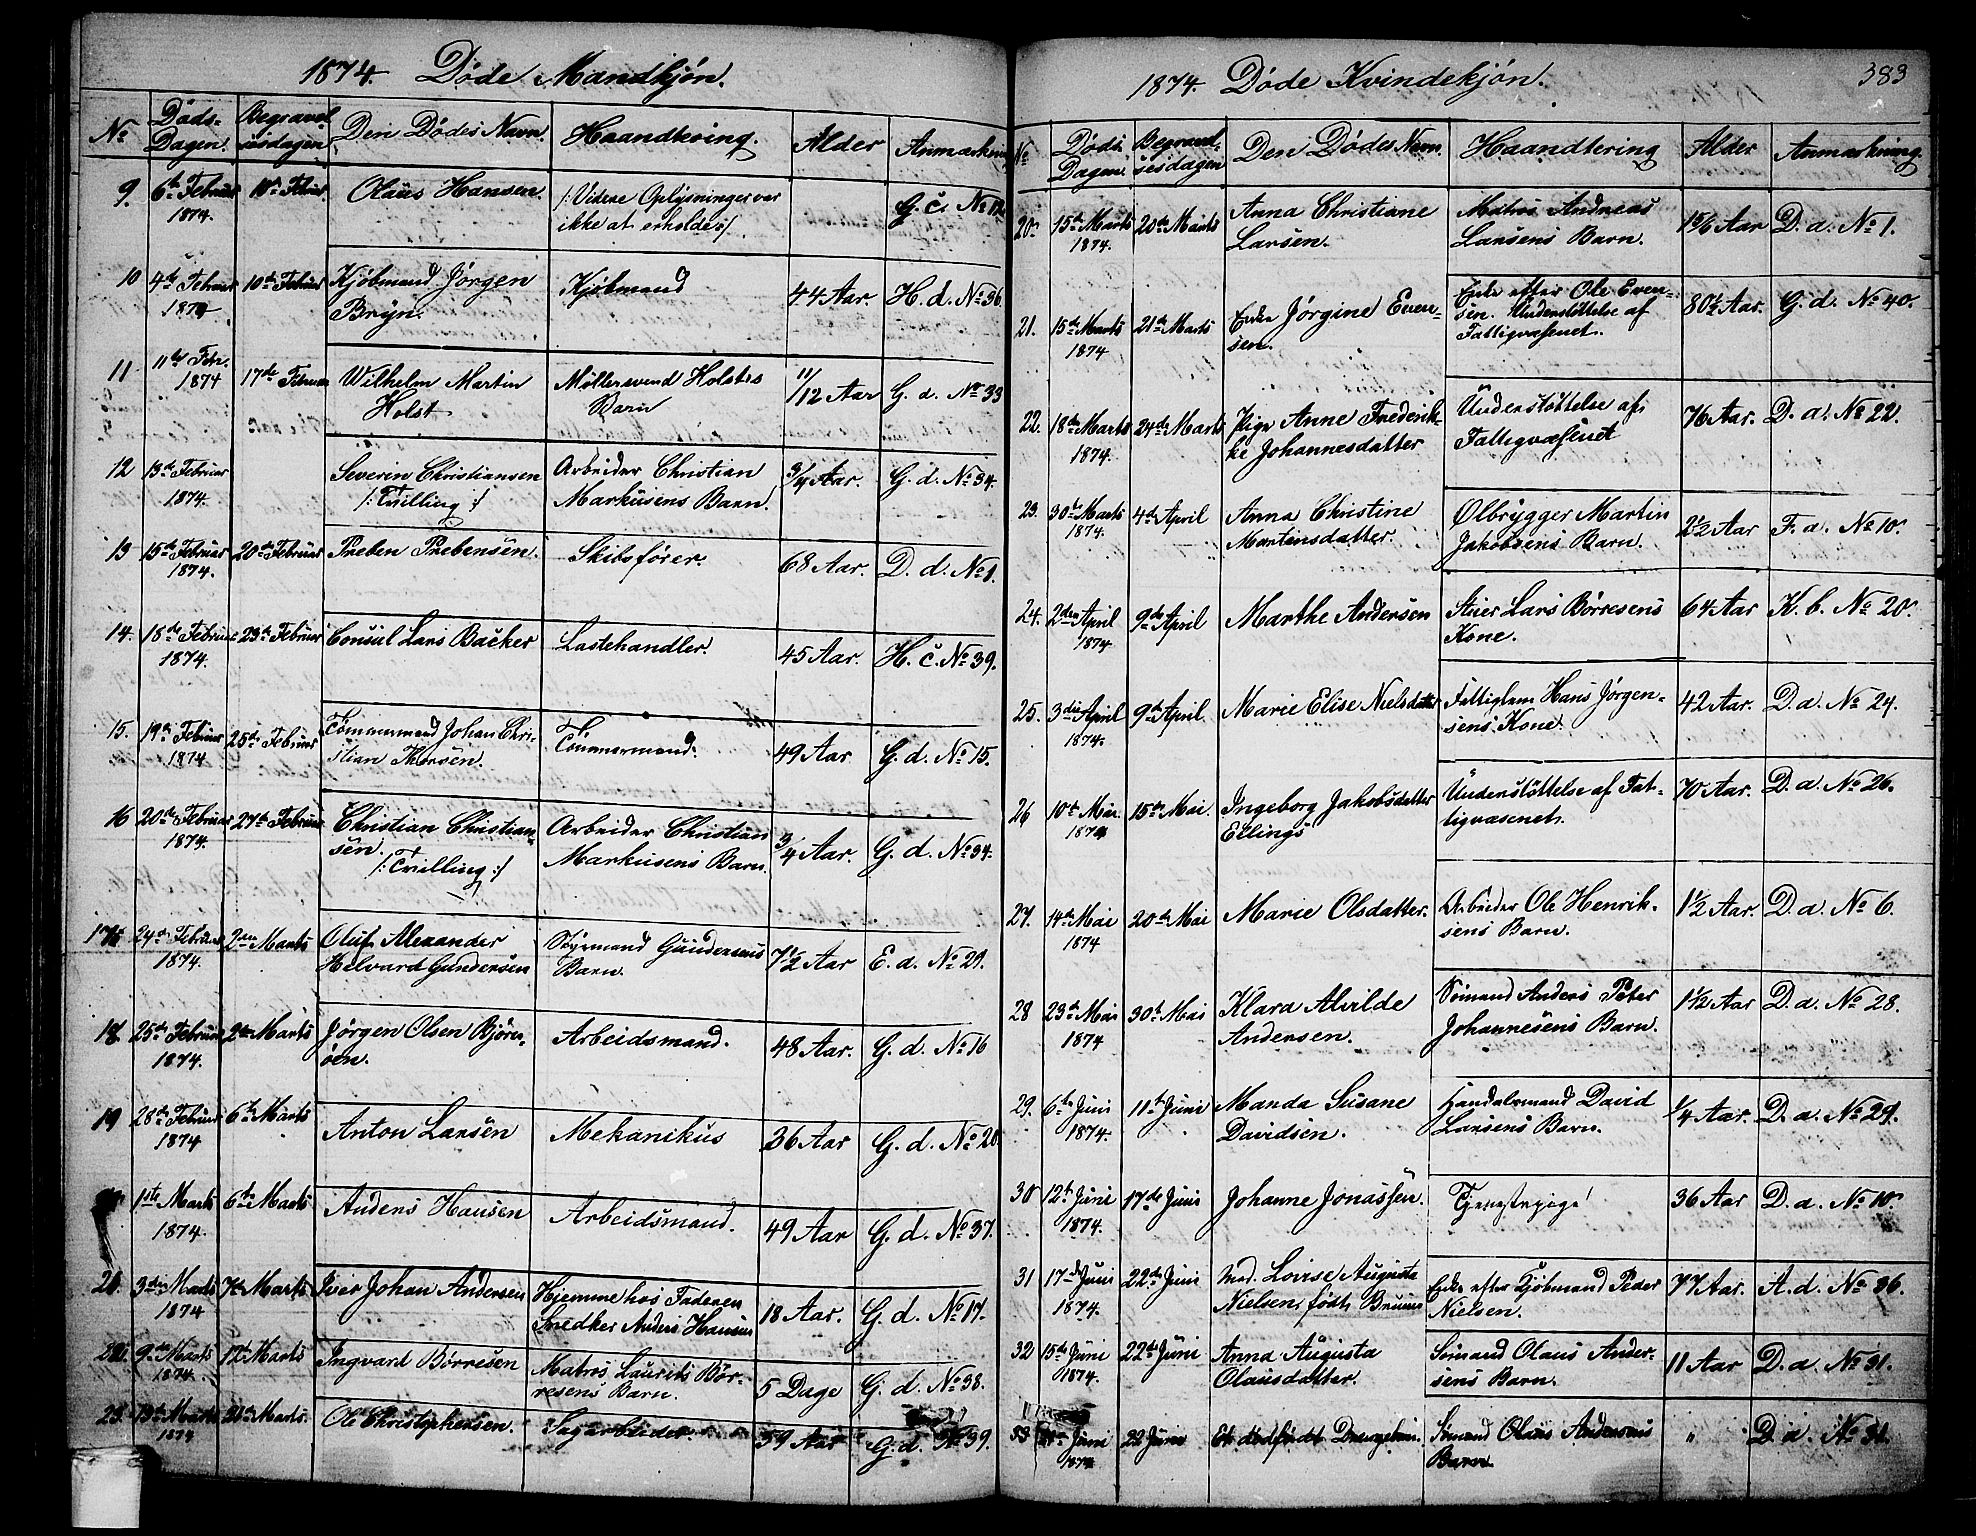 1874. Døde Mandkjøn.
No Døds-Dagen. Begravelsesdagen Den Dødes Navn. Haandtering. Alder Anmærkning
9. 6te Februar 1874. 10de Februar. Olaus Hansen. /: Videre Oplysninger var ikke at erholde :/ G. c. No
10 4de Februar 1874 10de Februar Kjøbmand Jørgen Bryn. Kjøbmand 44 Aar. H. d. No 36.
11 11te Febr. 1874 17de Februar Wilhelm Martin Holst Møllersvend Holsts Barn 11/12 Aar G. d. No 33
12 13de Februar 1874. Severin Christiansen /: Tvilling :/ Arbeider Christian Markusens Barn. 3/4 Aar. G. d. No 34.
13 15de Februar 1874. 20de Februar Preben Prebensen. Skibsfører. 68 Aar. D. d. No 1.
14. 18de Februar 1874. 23de Februar Consul Lars Backer Lastehandler. 45 Aar. H. c. No 39.
15. 19de Februar 1874 25de Februar Tømmermand Johan Christian Thorsen. Tømmermand. 49 Aar G. d. No 15.
16 20de Februar 1874. 27de Februar Christian Christiansen. /: Tvilling :/ Arbeider Christian Markusens Barn. 3/4 Aar. G. d. No 34.
17 24de Februar 1874. 2den Marts Oluf Alexander Helvard Gundersen Styrmand Gundersens Barn. 7 1/2 Aar E. d. No 29.
18. 25de Februar 1874. 2den Marts Jørgen Olsen Bjørnøen. Arbeidsmand. 48 Aar. G. d. No 16
19 28de Februar 1874 6te Marts Anton Larsen Mekanikus 36 Aar G. d. No 28
1ste Marts 1874. 6te Marts Anders Hansen Arbeidsmand. 49 Aar G. d. No 37.
21. 3die Marts 1874 7de Marts Iver Johan Andersen Hjemme hos Faderen Snedker Anders Hansen 18 Aar. G. d. No 17.
22. 9de Marts 1874. 12te Marts Ingvard Børresen Matros Laurits Børresens Barn. 5 Dage G. d. No 38.
23. 13de Marts 1874 20de Marts. Ole Christophersen. Sagarbeider. 59 Aar G. d. No 39.
1874. Døde Kvindekjøn. 383
No Døds Dagen. Begravelsesdagen Den Dødes Navn. Haandtering Alder Anmærkning.
20. 15de Marts 1874. 20de Marts Anna Christiane Larsen. Matros Andreas Larsens Barn. 1 5/6 Aar D. a. No 1.
21. 15de Marts 1874 21de Marts Enke Jørgine Evensen. Enke efter Ole Evensen. Understøttelse af Fattigvæsenet. 80 1/2 Aar. G. d. No 40.
22. 18de Marts 1874. 24de Marts Pige Anne Frederikke Johannesdatter Understøttelse af Fattigvæsenet 76 Aar. D. a. No 22.
23. 30te Marts 1874. 4de April Anna Christine Martinsdatter. Ølbrygger Martin Jakobsens Barn. 2 1/2 Aar F. a. No 10.
24. 2den April 1874 9de April Marthe Andersen Stuer Lars Børresens Kone. 64 Aar K. b. No 20.
25. 3die April 1874. 9de April. Marie Elise Nielsdatter Fattiglem Hans Jørgensens Kone. 42 Aar. D. a. No 24.
26 10de Mai. 1874 15de Mai. Ingeborg Jakobsdatter Ellings Understøttelse af Fattigvæsenet. 70 Aar. D. a. No 26.
27. 14de Mai 1874 20de Mai Marie Olsdatter. Arbeider Ole Henriksens Barn. 1 1/2 Aar. D. a. No 6.
28 23de Mai 1874 30te Mai Klara Alvilde Andersen. Sømand Anders Peter Johannesens Barn. 1 1/2 Aar D. a. No 28.
29. 6te Juni 1874. 11te Juni Manda Susane Davidsen. Handelsmand David Larsens Barn. 1/4 Aar. D. a. No 29.
30 12te Juni 1874. 17de Juni Johanne Jonassen. Tjenestepige 36 Aar D. a. No 10.
31 17de Juni 1874. 22de Juni Mad. Lovise Augusta Nielsen, født Bruun Enke efter Kjøbmand Peder Nielsen. 77 Aar. A. d. No 36.
32 15de Juni 1874. 22de Juni Anna Augusta Olausdatter. Sømand Olaus Andersens Barn. 11 Aar D. a. No 31.
33 Juni 1874 22 Juni Et dødfødt Drengebarn. Sømand Olaus Andersens Barn. " D. a. No 31.